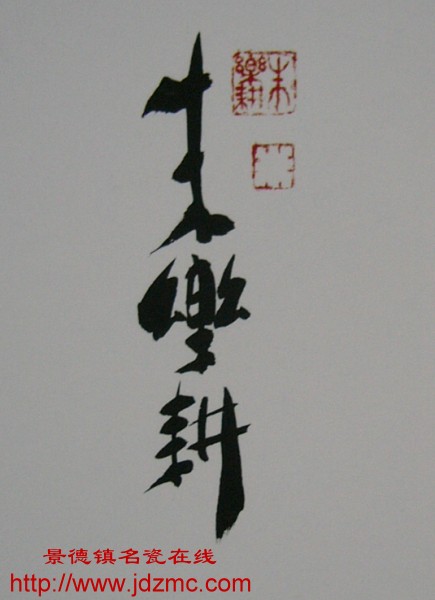 朱樂耕
朱樂耕
景德镇名瓷在线
http://www.jdzmc.com/